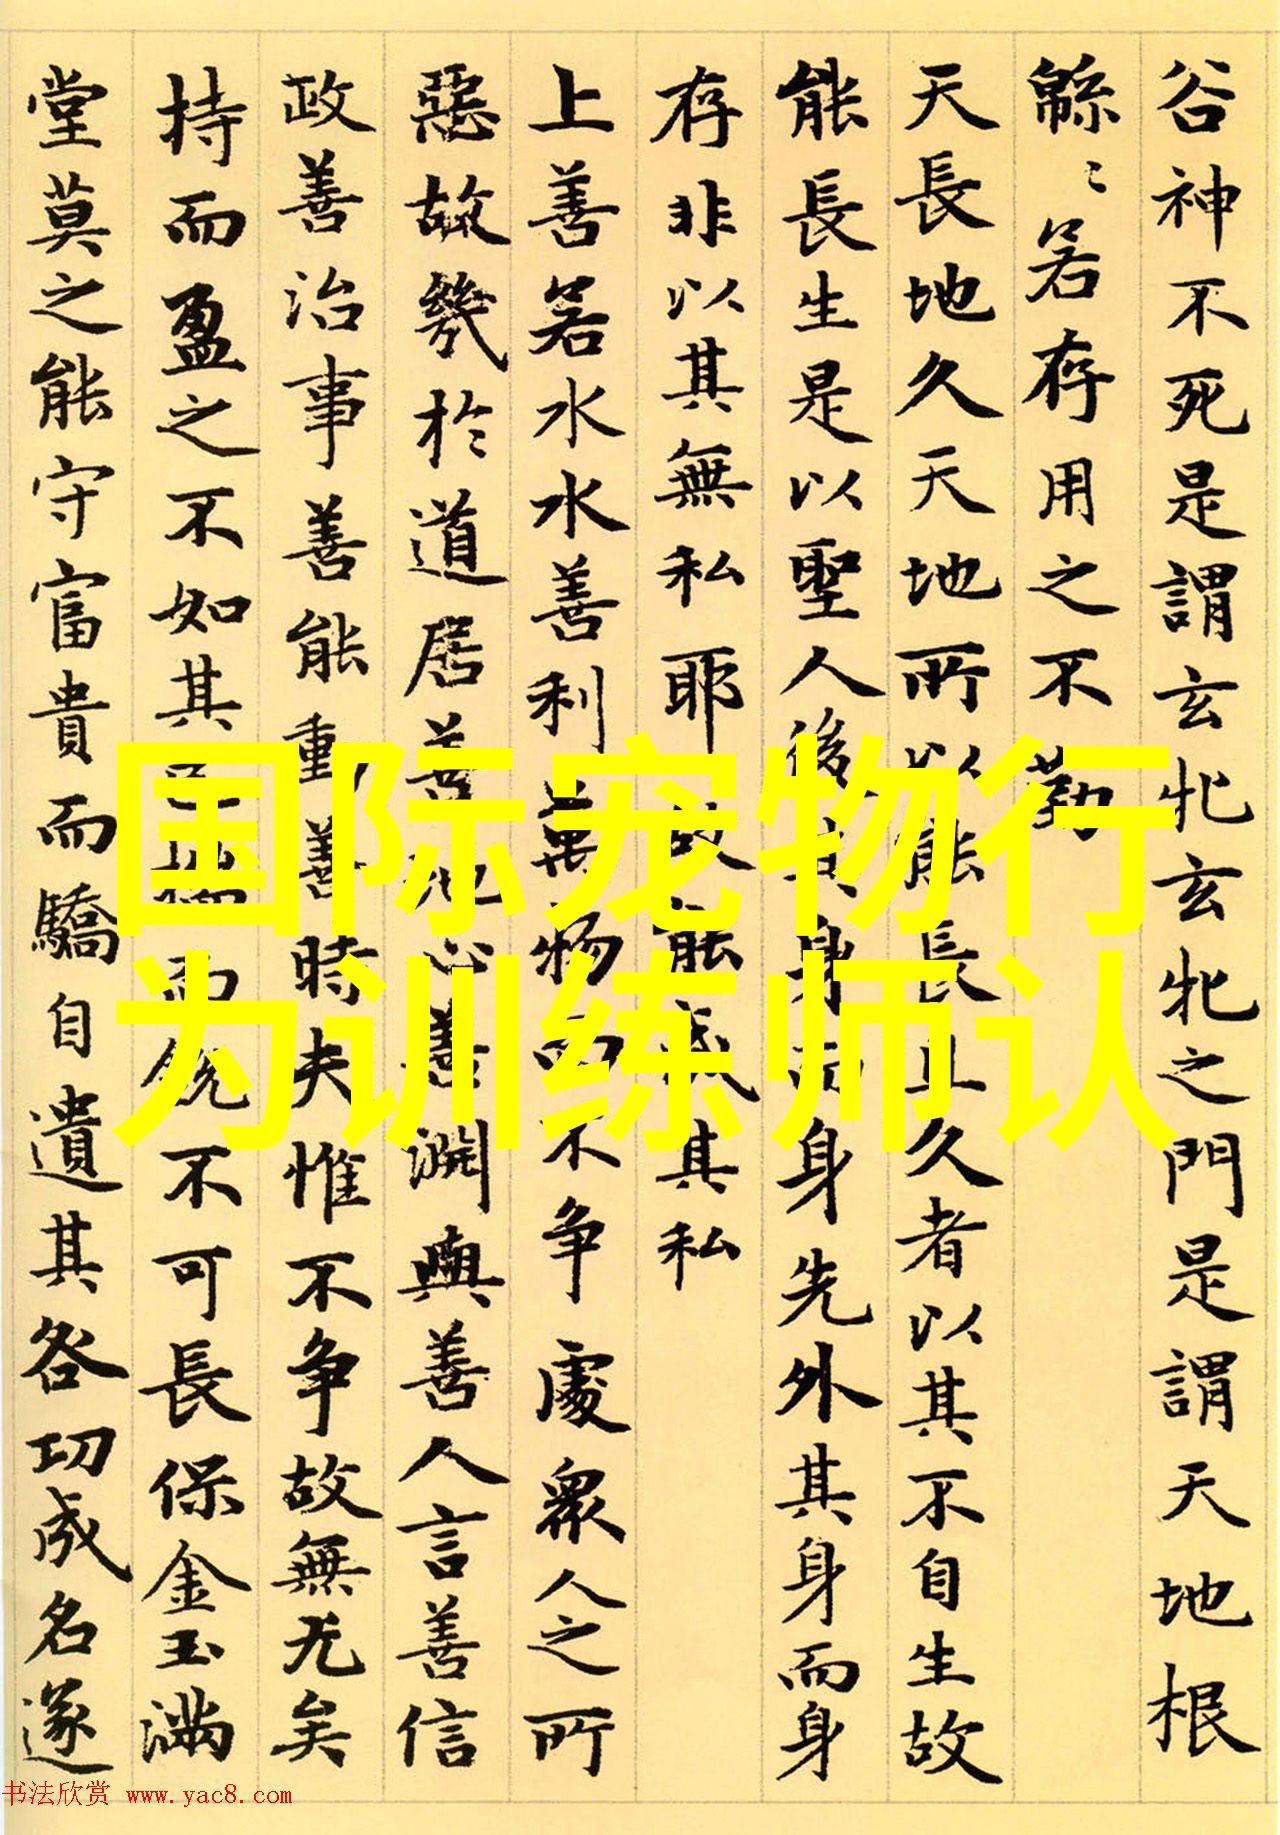 谷神不死是謂玄牝玄牝之門是謂天地根
緜〻若存用之不勤
天長地久天地所以能長且久者以其不自生故
能長生是以聖人後其身而身先外其身而身
存非以其無私耶故能成其私
上善若水水善利萬物而不争處衆人之所
惡故幾於道居善地心善淵與善人言善信
政善治事善能動善時夫惟不争故無尤矣
持而盈之不如其已揣而銳不可長保金玉滿
堂莫之能守富貴而驕自遺其咎功成名遂
国际宠物行
为训练师认
书法欣赏 www.yac8.com